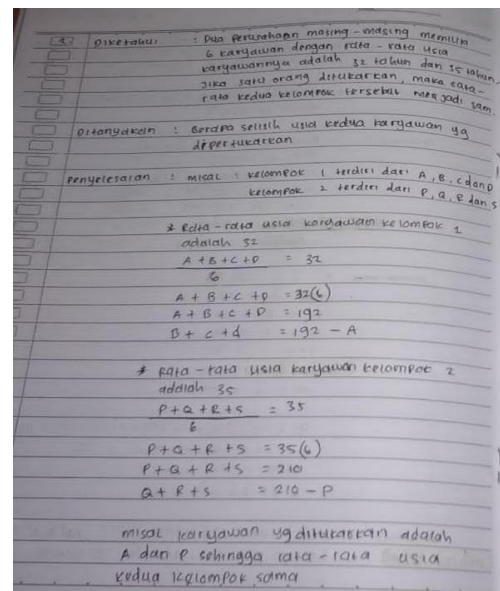 1. Diketahui : Dua perusahaan masing-masing memiliki
6 karyawan dengan rata-rata usia
karyawannya adalah 32 tahun dan 35 tahun.
Jika satu orang ditukarkan, maka rata-
rata kedua kelompok tersebut menjadi sama.
Ditanyakan : Berapa selisih usia kedua karyawan yg
dipertukarkan
Penyelesaian : misal : kelompok 1 terdiri dari A, B, C dan D
kelompok 2 terdiri dari P, Q, R dan S
* Rata-rata usia karyawan kelompok 1
adalah 32
A + B + C + D = 32
6
A + B + C + D = 32(6)
A + B + C + D = 192
B + C + d = 192 - A
* Rata-rata usia karyawan kelompok 2
adalah 35
P + Q + R + S = 35
6
P + Q + R + S = 35(6)
P + Q + R + S = 210
Q + R + S = 210 - P
misal karyawan yg ditukarkan adalah
A dan P sehingga rata-rata usia
kedua kelompok sama